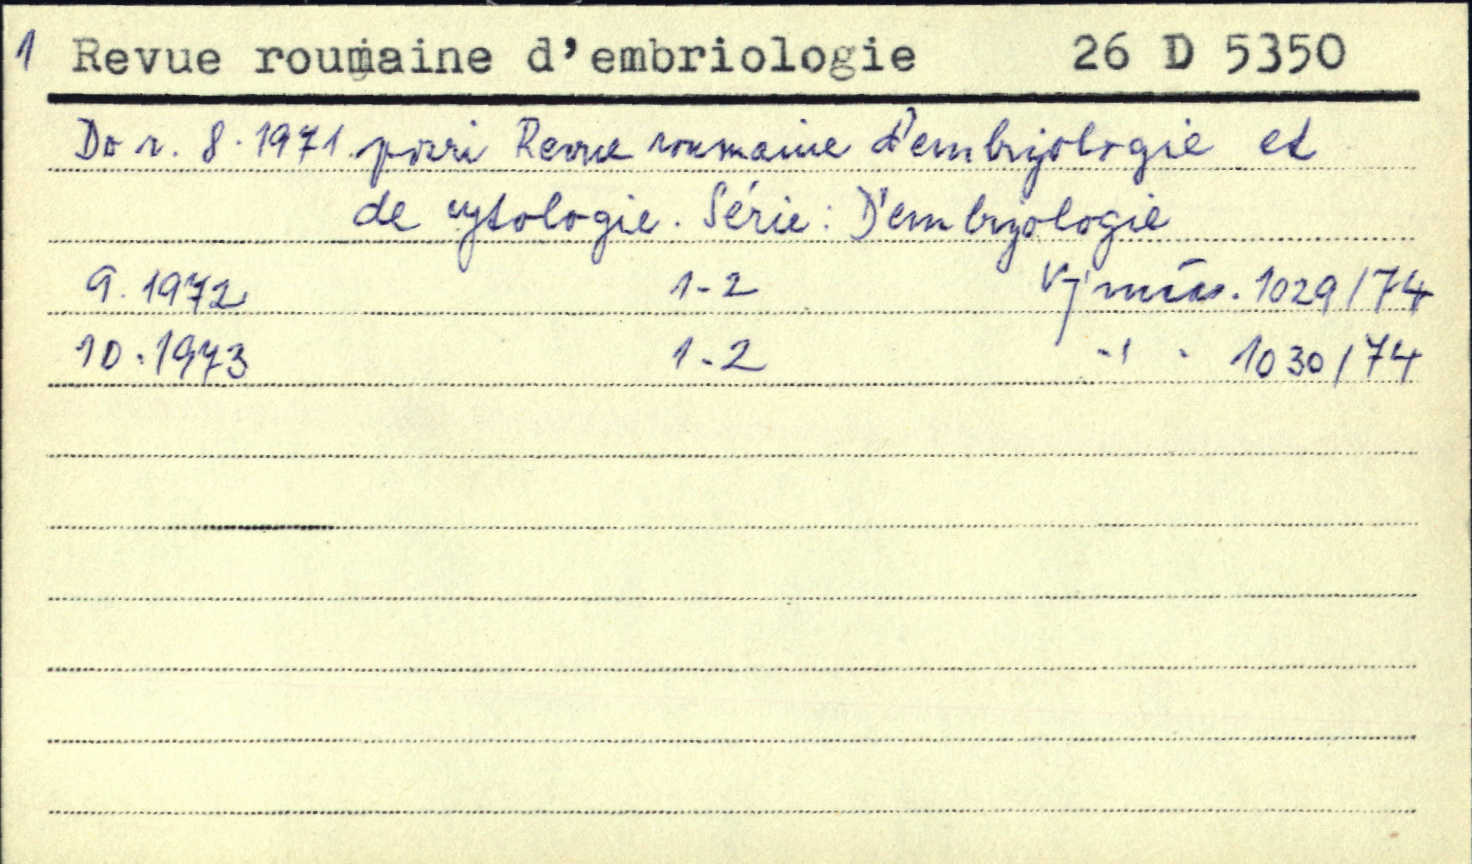 1 Revue roumaine d'embriologie 26 D 5350
Do r. 8.1971 pozri Revue roumaine d'embryologie et
de cytologie. Série: D'embryologie
9.1972 1-2 Výmena. 1029/74
10.1973 1-2 -"- 1030/74